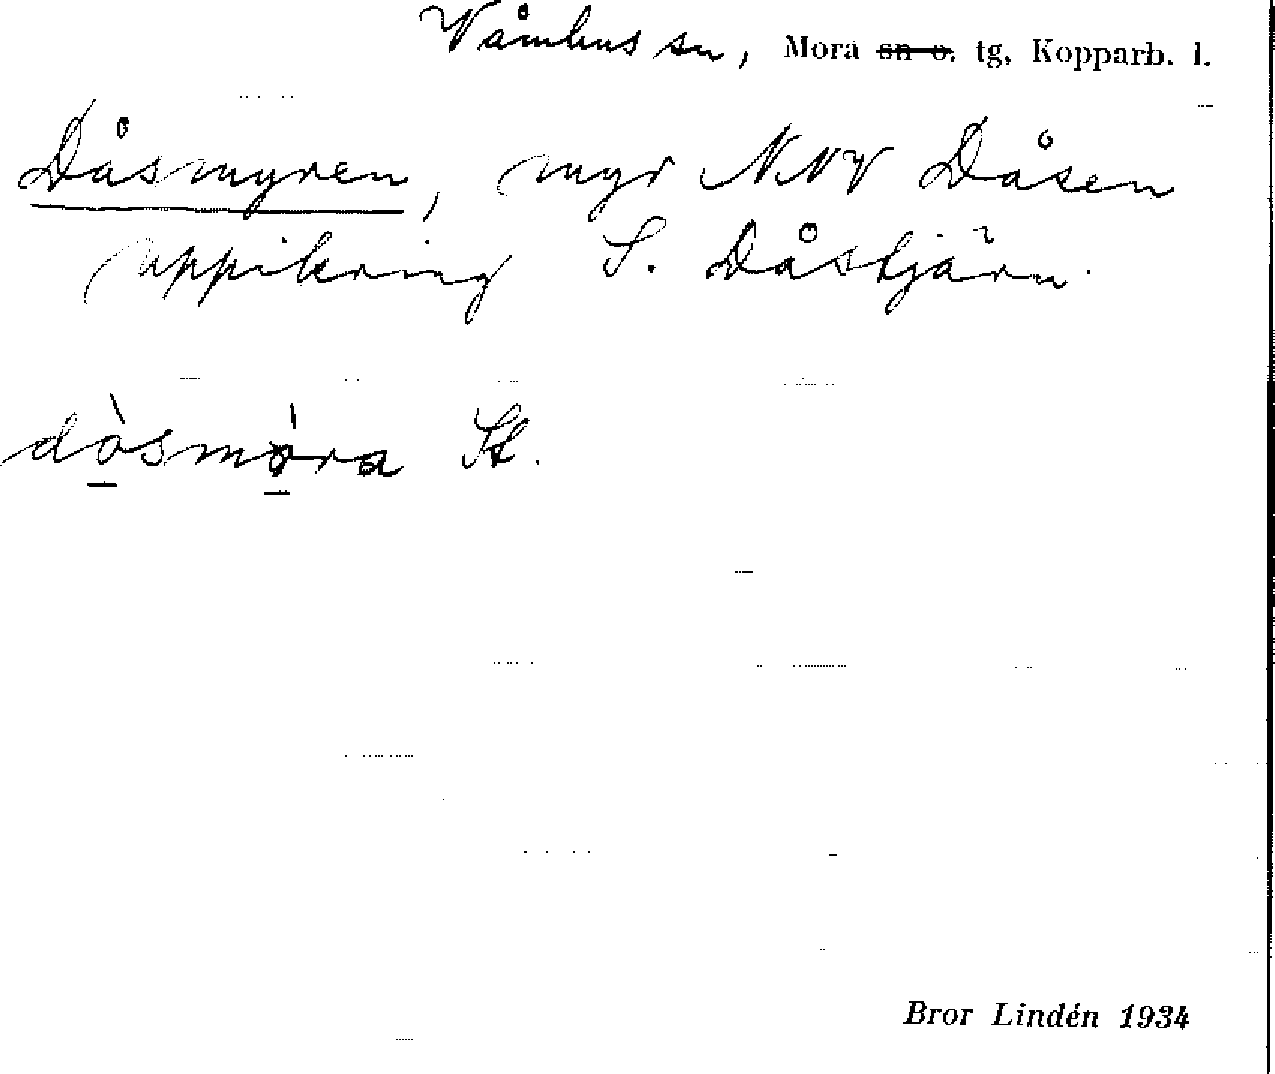 Våmhus sn, Mora sn o. tg, Kopparb. l.
Dåsmyren, myr NNV Dåsen
uppikring S. Dåstjärn.
dò̱smó̱ra St.
Bror Lindén 1934